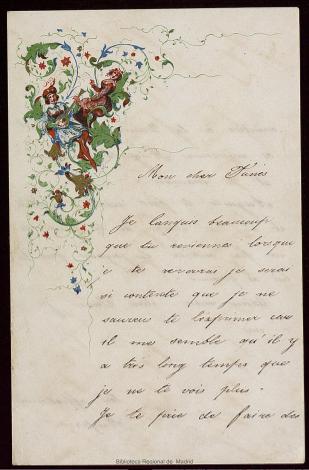 Mon cher Funes
Je languis beaucoup
que tu reviennes lorsque
je te reverai je serai
si contente que je ne
saurai te l'exprimer car
il me semble qu'il y
a très long temps que
je ne te vois plus.
Je te prie de faire des
Biblioteca Regional de Madrid